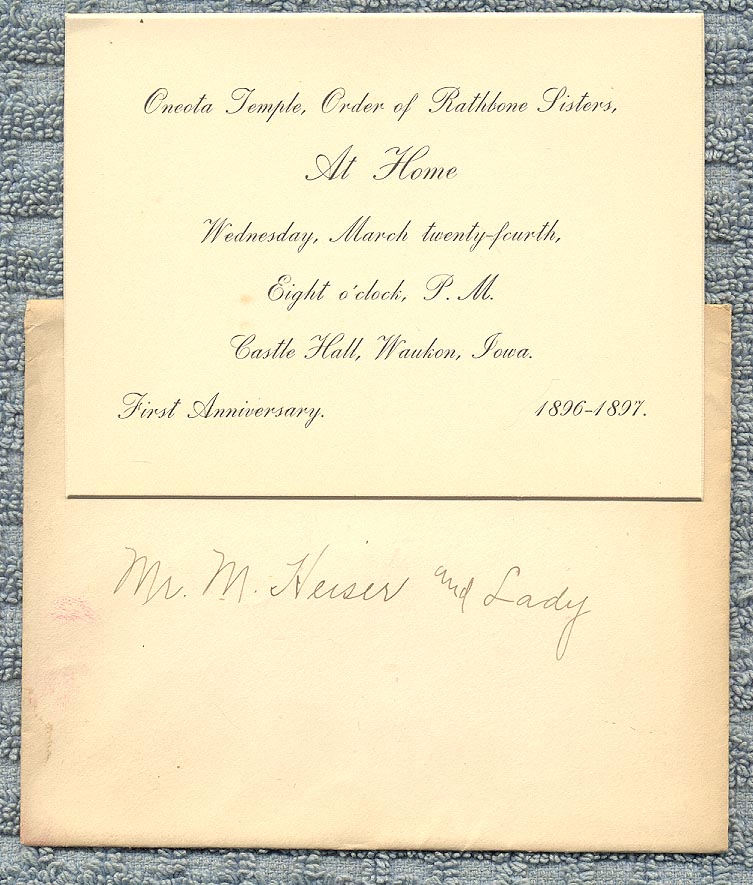 Oneota Temple, Order of Rathbone Sisters,
At Home
Wednesday, March twenty-fourth,
Eight o'clock, P. M.
Castle Hall, Waukon, Iowa.
First Anniversary. 1896-1897.
Mr. M. Heiser and Lady